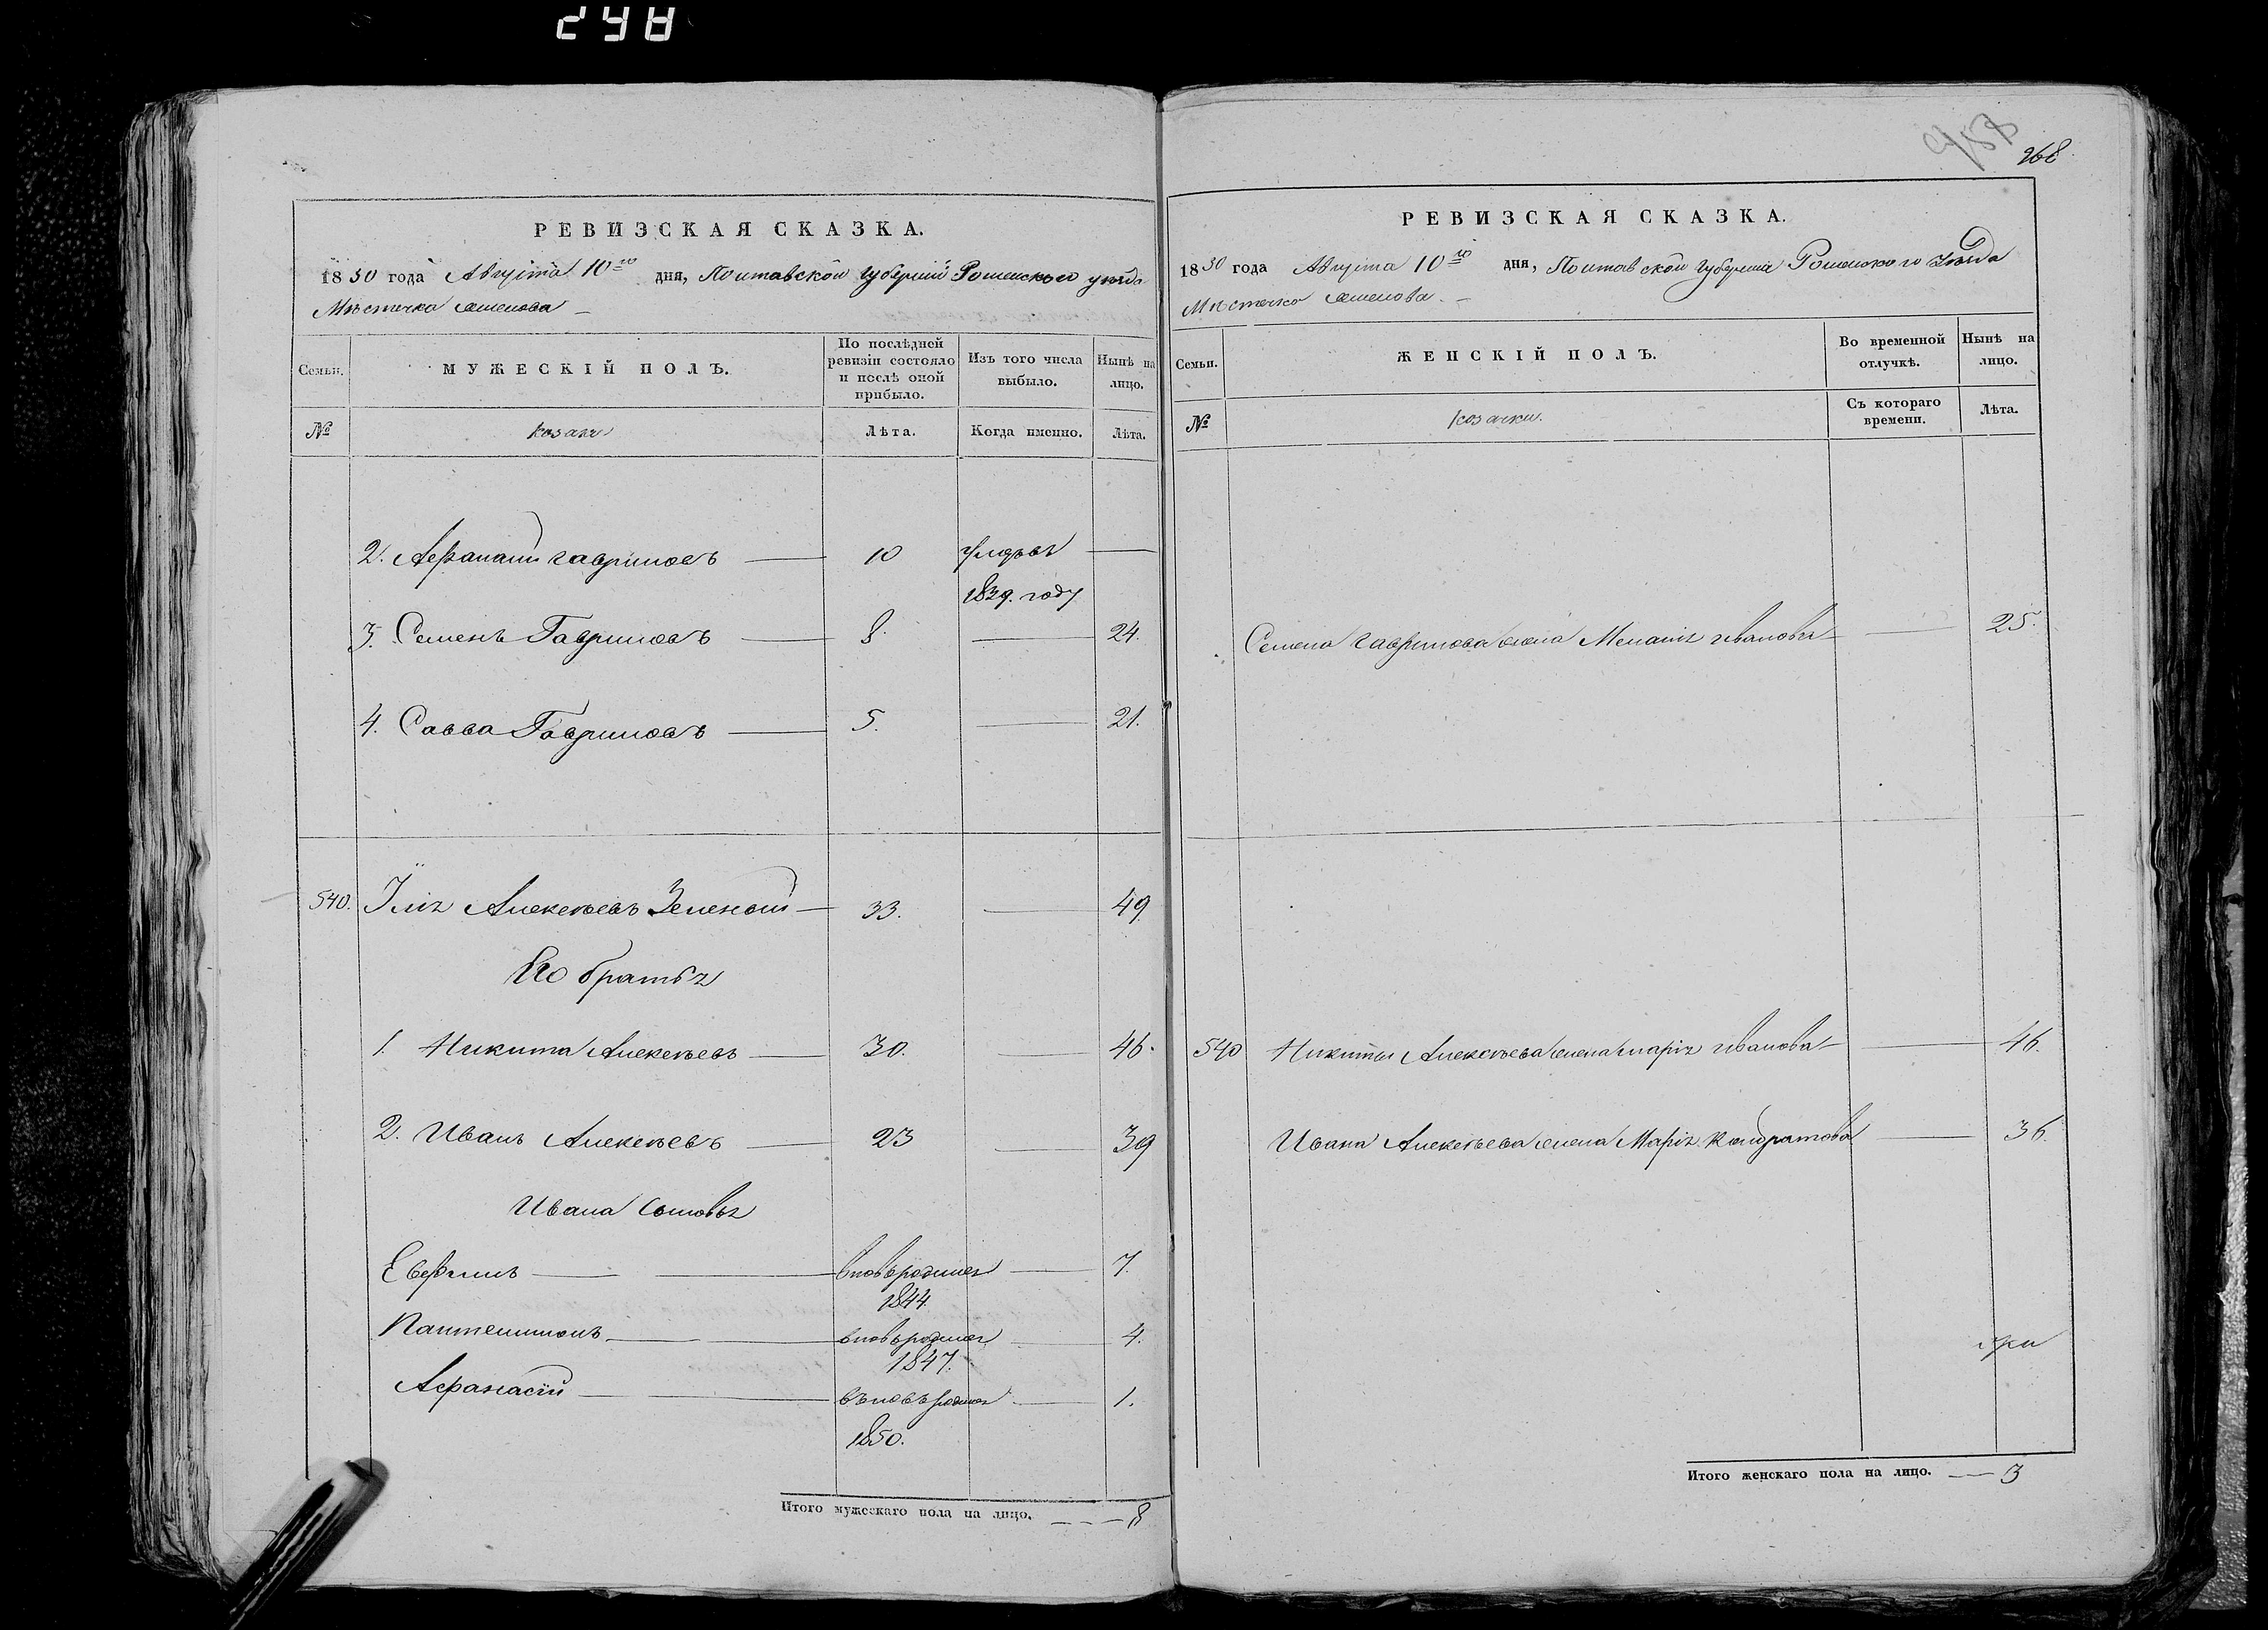 298
РЕВИЗСКАЯ СКАЗКА.
1850 года Августа 10го дня, Полтавской губернии Роменскаго уѣзда
Мѣстечка Смелова
Семьи. МУЖЕСКІЙ ПОЛЪ. По послѣдней ревизіи состояло и послѣ оной прибыло. Изъ того числа выбыло. Нынѣ на лицо.
№ козаки Лѣта. Когда именно. Лѣта.
2. Афанасий гавриловъ 10 умръ
1839. году
3. Семенъ Гавриловъ 8. 24.
4. Савва Гавриловъ 5. 21.
540. Ілія Алексѣевъ Зеленый 33. 49
Его братья
1. Никита Алексѣевъ 30. 46.
2. Иванъ Алексѣевъ 23 39
Ивана сыновья
Евфимъ вновьродился 7.
1844
Пантелимонъ вновьродился 4.
1847.
Афанасій въновьродился 1.
1850.
Итого мужескаго пола на лицо. 8
268
РЕВИЗСКАЯ СКАЗКА.
1850 года Августа 10го дня, Полтавской губернии Роменскаго уѣзда
Мѣстечка Смелова
Семьи. ЖЕНСКІЙ ПОЛЪ. Во временной отлучкѣ. Нынѣ на лицо.
№ козачки. Съ котораго времени. Лѣта.
Семена гаврилова жена Меланія иванова 25.
540 Никиты Алексѣева жена марія иванова 46.
Ивана Алексѣева жена Марія Кондратова 36.
Итого женскаго пола на лицо. 3